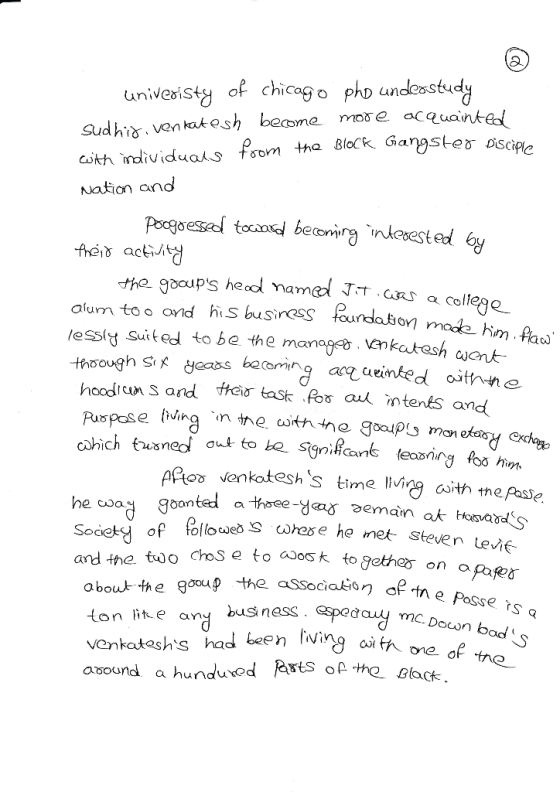 2
univeristy of chicago phD understudy
sudhir. venkatesh become more acquainted
with individuals from the Block Gangster Disciple
Nation and
progressed toward becoming interested by
their activity
the group's head named J.T. was a college
alum too and his business foundation made him. flaw
lessly suited to be the manager. venkatesh went
through six years becoming acqueinted with the
hoodlums and their task for all intents and
Purpose living in the with the group's monetary exchage
which turned out to be significants learning for him.
After venkatesh's time living with the posse.
he way granted a three-year remain at Harvard's
Society of followers where he met steven levit
and the two chose to work together on a paper
about the group the association of the Posse is a
ton like any business. especially mc.Down bad's
venkatesh's had been living with one of the
around a hundured parts of the Black.